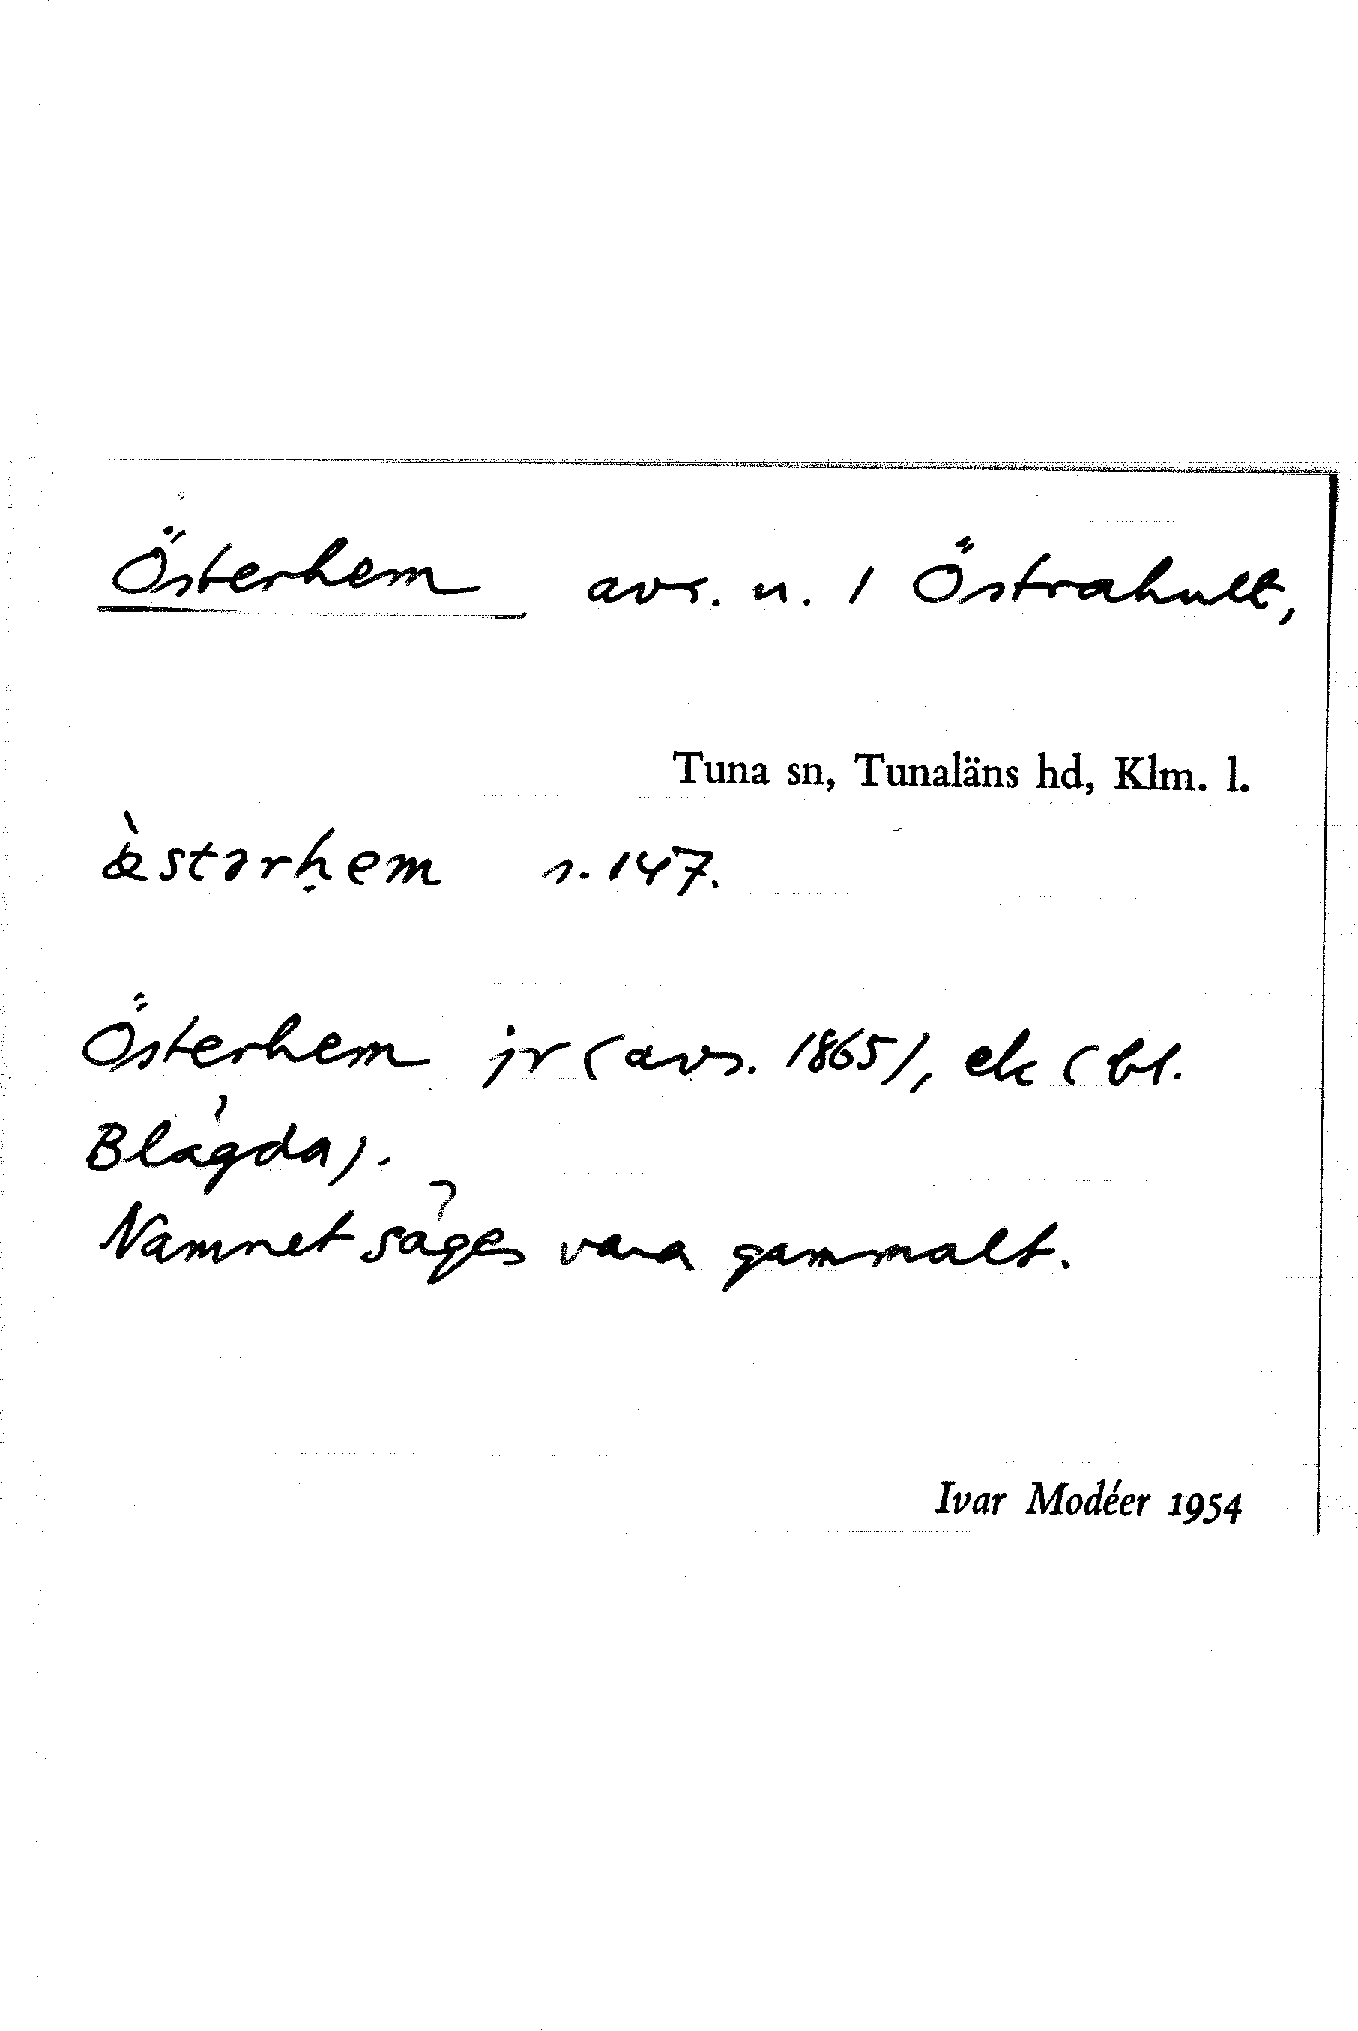 Österhem avs. u. 1 Östrahult,
Tuna sn, Tunaläns hd, Klm. l.
æ̀stərḥem s. 147.
Österhem jr (avs. 1865), ek (bl.
Blågda).
Namnet säges vara gammalt.
Ivar Modéer 1954